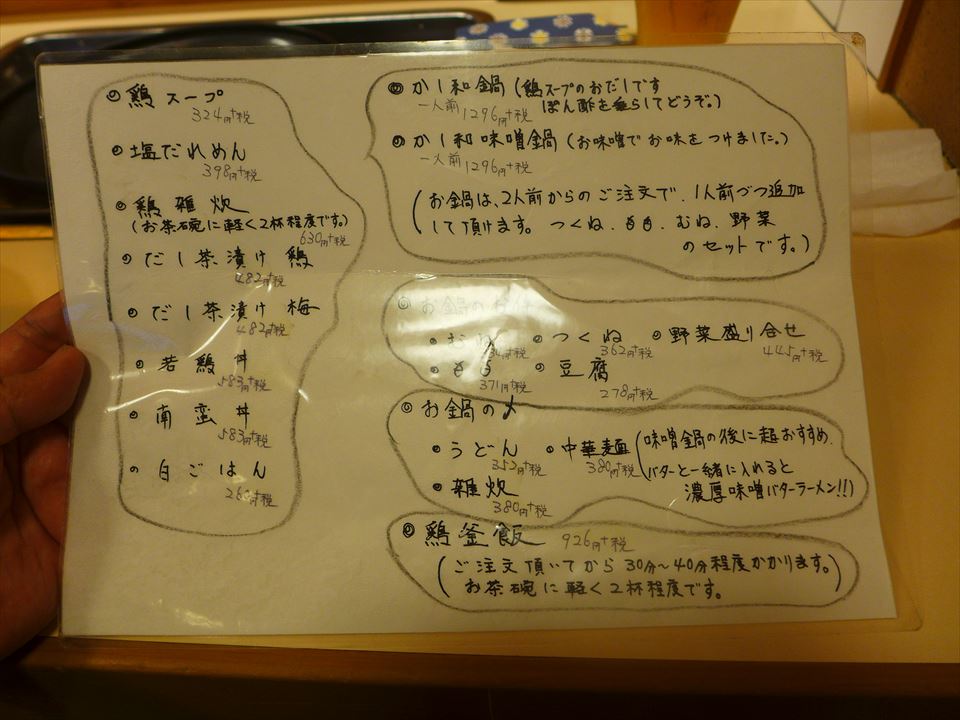 鶏スープ
324円+税
塩だれめん
398円+税
鶏雑炊
(お茶碗に軽く2杯程度です。)
630円+税
だし茶漬け 鶏
482円+税
だし茶漬け 梅
482円+税
若鶏丼
583円+税
南蛮丼
583円+税
白ごはん
円+税
かしわ鍋(鶏スープのおだしです
一人前 1296円+税 ぽん酢を垂らしてどうぞ。)
かしわ味噌鍋(お味噌でお味をつけました。)
一人前 1296円+税
(お鍋は、2人前からのご注文で、1人前づつ追加
して頂けます。つくね、もも、むね、野菜
のセットです。)
お鍋の
つくね 野菜盛り合せ
362円+税 445円+税
もも 豆腐
371円+税 278円+税
お鍋の〆
うどん 中華麺 (味噌鍋の後に超おすすめ。
352円+税 380円+税 バターと一緒に入れると
雑炊 濃厚味噌バターラーメン!!)
380円+税
鶏釜飯 926円+税
(ご注文頂いてから30分〜40分程度かかります。
お茶碗に軽く2杯程度です。)